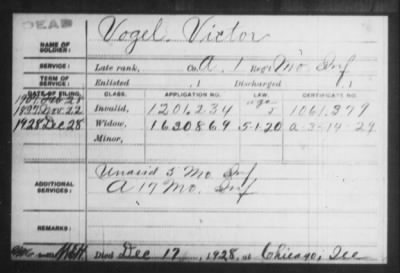 DEAD
Vogel, Victor
NAME OF SOLDIER:
SERVICE: Late rank, Co. A, 1 Reg't Mo. Inf
TERM OF SERVICE: Enlisted , 1 Discharged , 1
DATE OF FILING. CLASS. APPLICATION NO. LAW. CERTIFICATE NO.
1897 Nov 22 Invalid, 1201,234 1061,379
1928 Dec 28 Widow, 1630869 5-1-20 a-3-14-29
Minor,
ADDITIONAL SERVICES: 3 Mo. Inf
A 17 Mo. Inf
REMARKS:
Died Dec 17, 1928, at Chicago, Ill